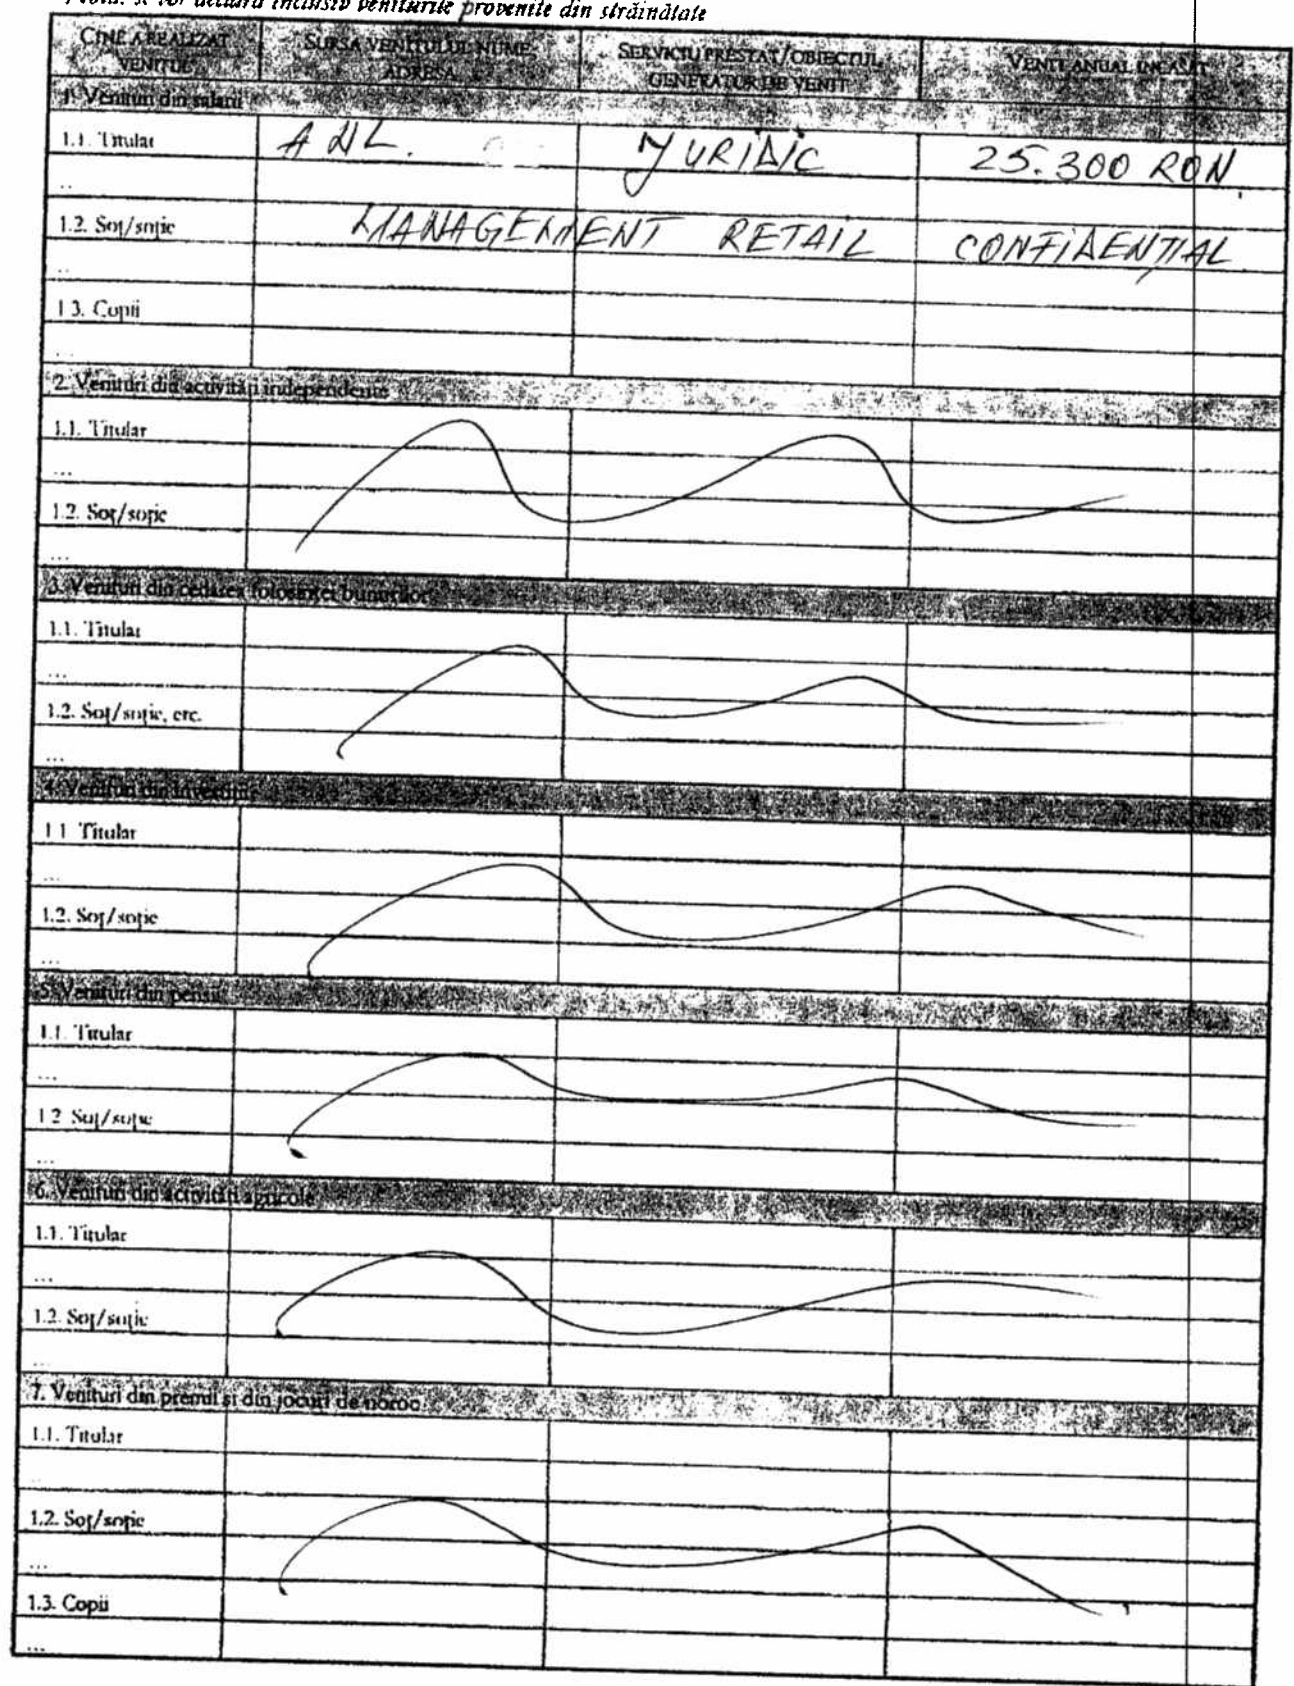 se vor declara inclusiv veniturile provenite din străinătate
CINE A REALIZAT VENITUL SURSA VENITULUI: NUME, ADRESA SERVICIU PRESTAT/OBIECTUL GENERATOR DE VENIT VENIT ANUAL INCASAT
1. Venituri din salarii
1.1. Titular ANL. JURIDIC 25.300 RON
..
1.2. Soţ/soţie MANAGEMENT RETAIL CONFIDENŢIAL
...
1 3. Copii
...
2. Venituri din activităţi independente
1.1. Titular
...
1.2. Soţ/soţie
...
3. Venituri din cedarea folosinţei bunurilor
1.1. Titular
...
1.2. Soţ/soţie, etc.
...
4. Venituri din investiţii
1 1 Titular
...
1.2. Soţ/soţie
...
5. Venituri din pensii
1.1. Titular
...
1 2 Soţ/soţie
...
6. Venituri din activităţi agricole
1.1. Titular
...
1.2. Soţ/soţie
...
7. Venituri din premii si din jocuri de noroc
1.1. Titular
..
1.2. Soţ/soţie
...
1.3. Copii
...